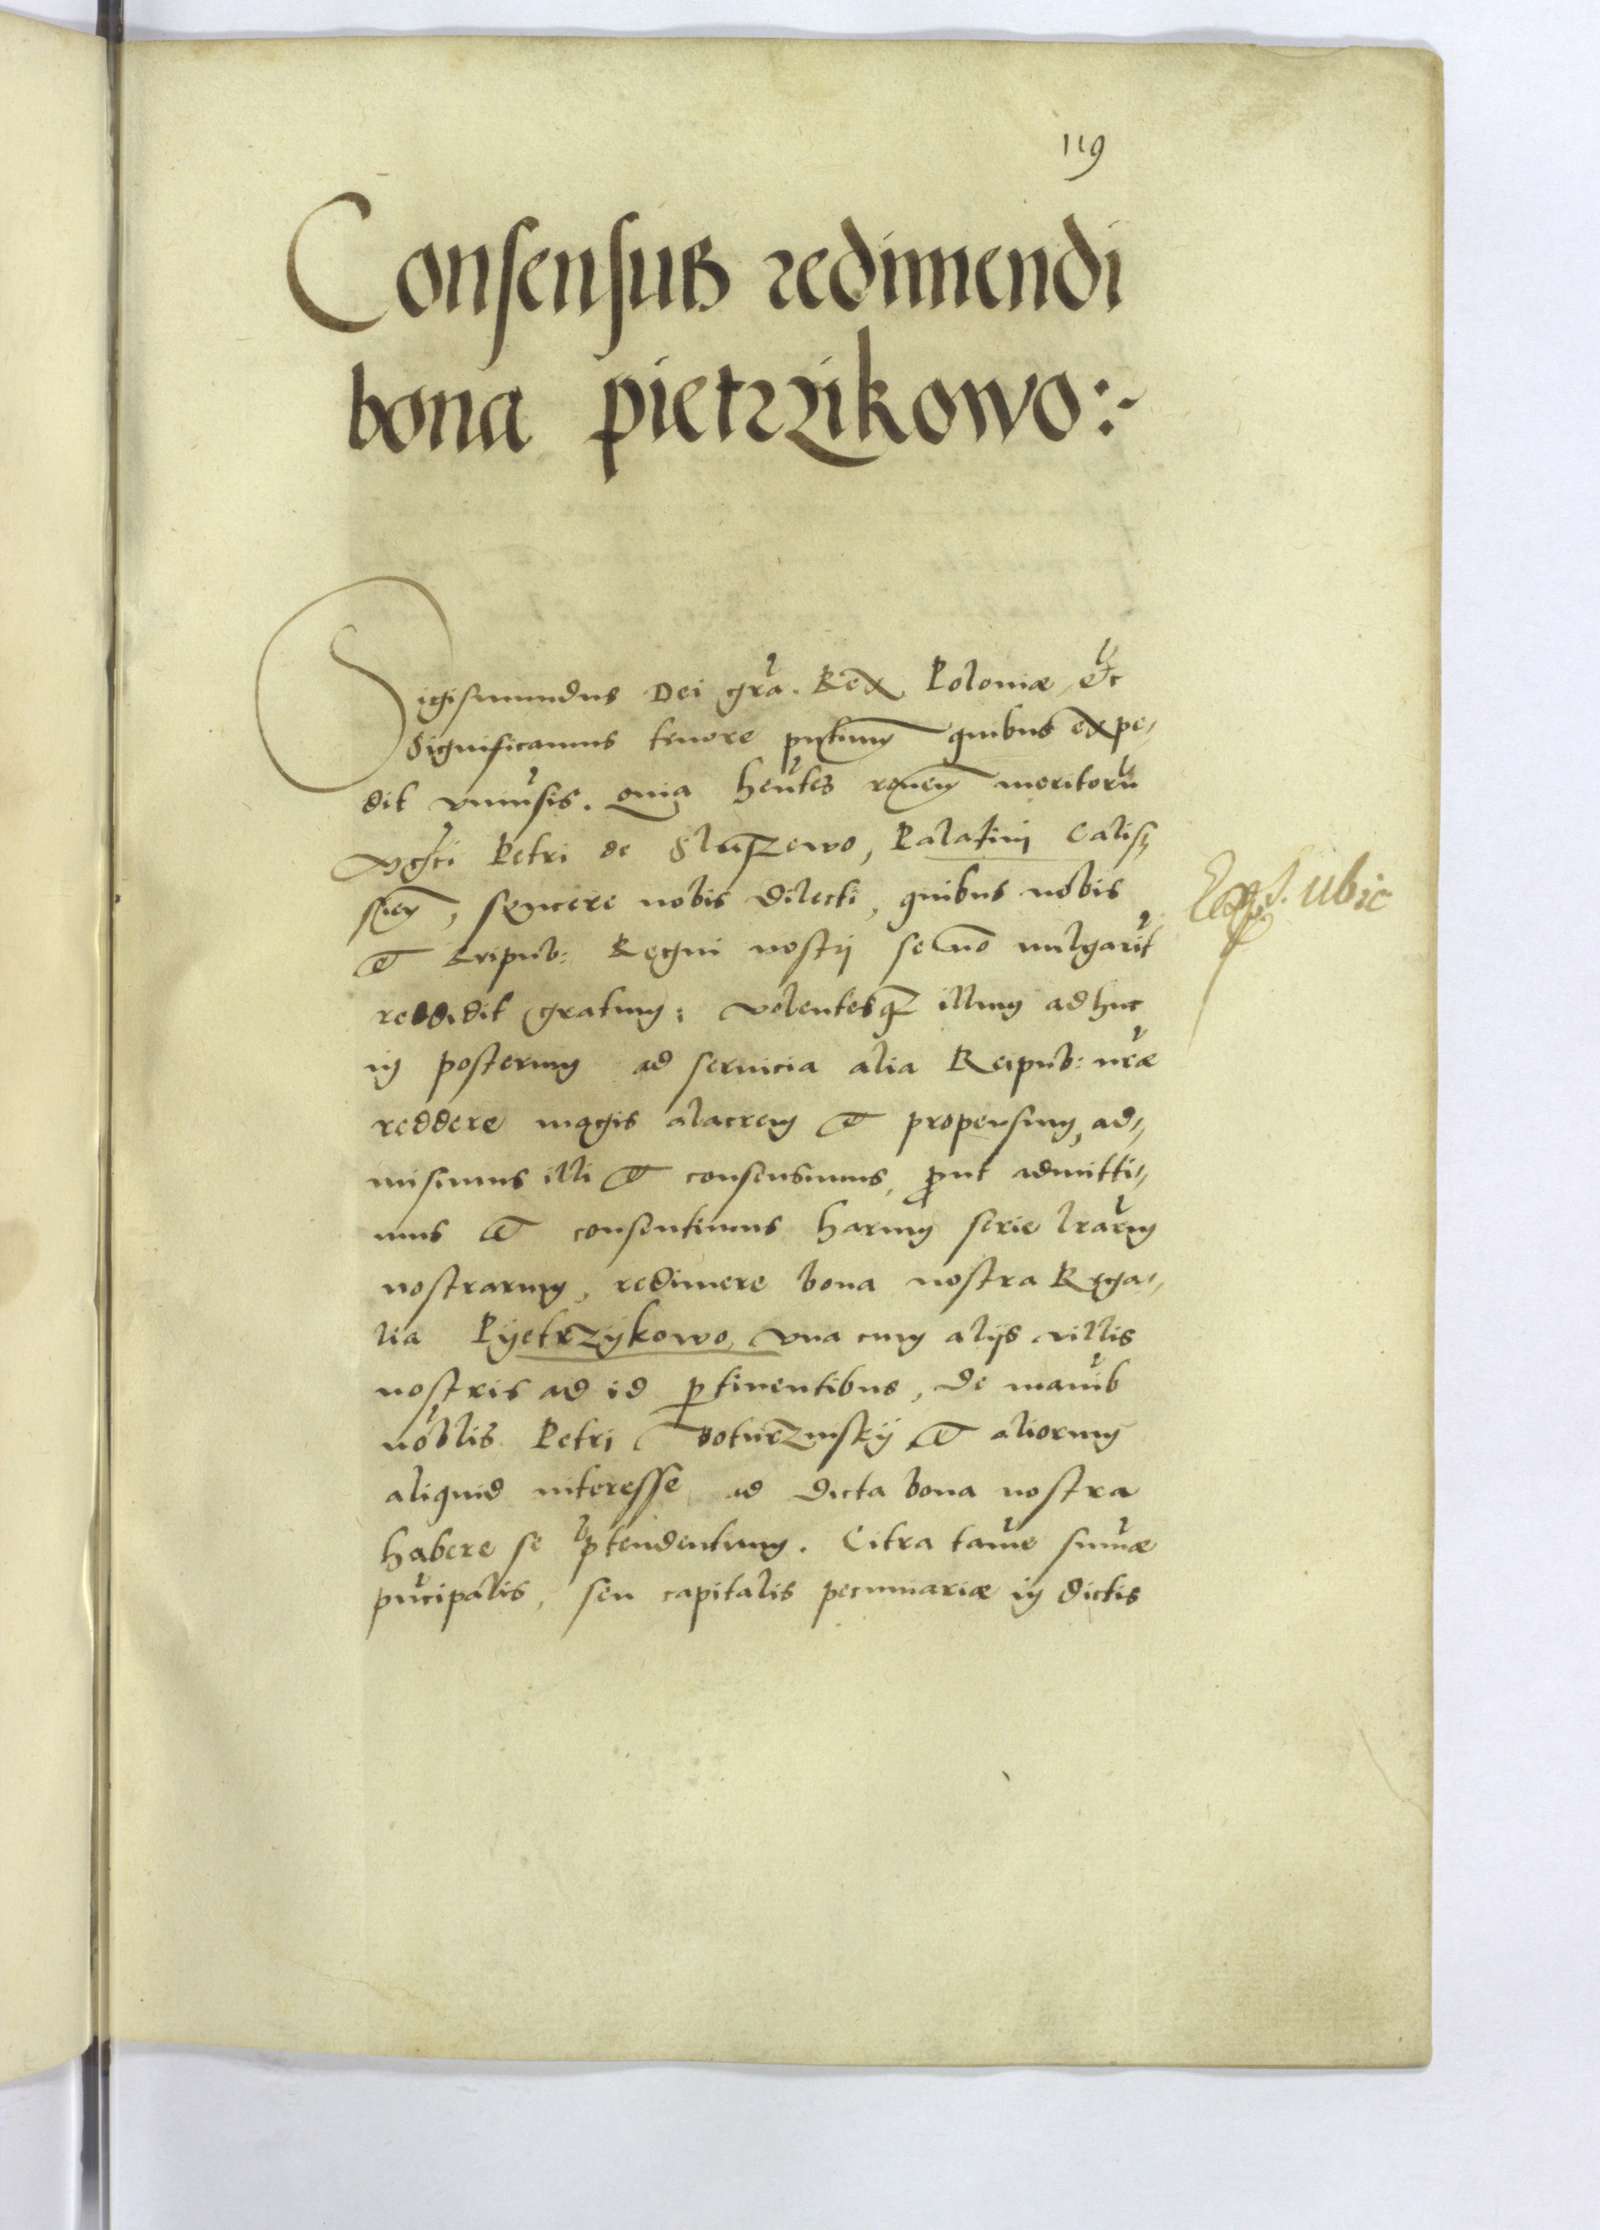 119
Consensus redimendi
bona pietrzikowo:~
Sigismundus Dei gra. Rex Poloniæ, etc
Significamus tenore pntium quibus expe,
dit vniusis. Quia hentes ronem meritoru
Mgfci Petri de Sluzewo, Palatini Calis,
sien, syncere nobis dilecti, quibus nobis
et Reipub: Regni nostri se no uulgarit
reddidit gratum: volentesq illum adhuc
in posterum ad seruicia alia Reipub: nræ
reddere magis alacrem et propensum, ad,,
misimus illi et consensimus, put admitti,,
mus et consentimus harum serie lrarum
nostrarum, redimere bona nostra Rega,,
lia Pyetrzykowo, vna cum alijs villis
nostris ad id ptinentibus, de manib
nobilis Petri et aliorum
aliquid interesse ad dicta bona nostra
habere se ptendentium. Citra tame sumæ
pncipalis, seu capitalis pecuniariæ in dictis
ubic